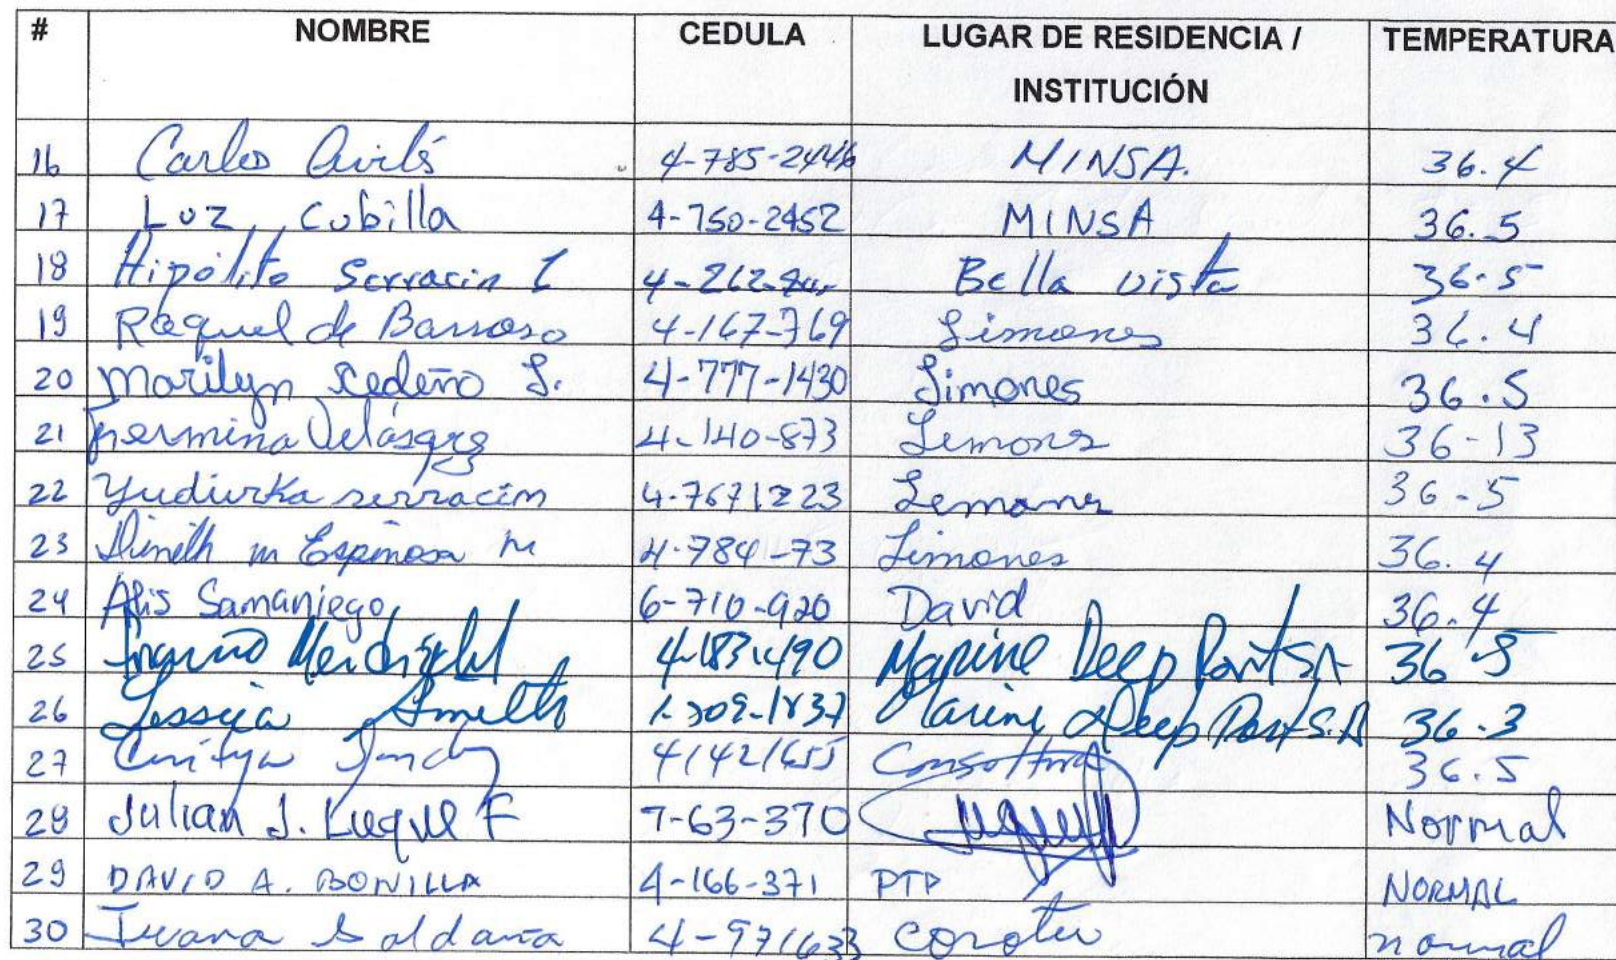 # NOMBRE CEDULA LUGAR DE RESIDENCIA / INSTITUCIÓN TEMPERATURA
16 Carlos Avilés 4-785-2446 MINSA. 36.4
17 Luz Cubilla 4-750-2452 MINSA 36.5
18 Hipólito Serracin 4-262- Bella vista 36.5
19 Raquel de Barroso 4-167-769 Limones 36.4
20 Marilyn Cedeño L. 4-777-1430 Limones 36.5
21 4-140-873 36-13
22 Yudiurka serracin 4-7671223 36-5
23 m Espinosa M 4-784-73 Limones 36.4
24 Alis Samaniego 6-710-920 David 36.4
25 4-183-490 Marine Deep Port SA 36.5
26 Jessica Marine Deep Port S.A 36.3
27 4/42/655 36.5
28 Julian J. Luque F 7-63-370 Normal
29 DAVID A. BONILLA 4-166-371 PTP NORMAL
30 Saldaña normal